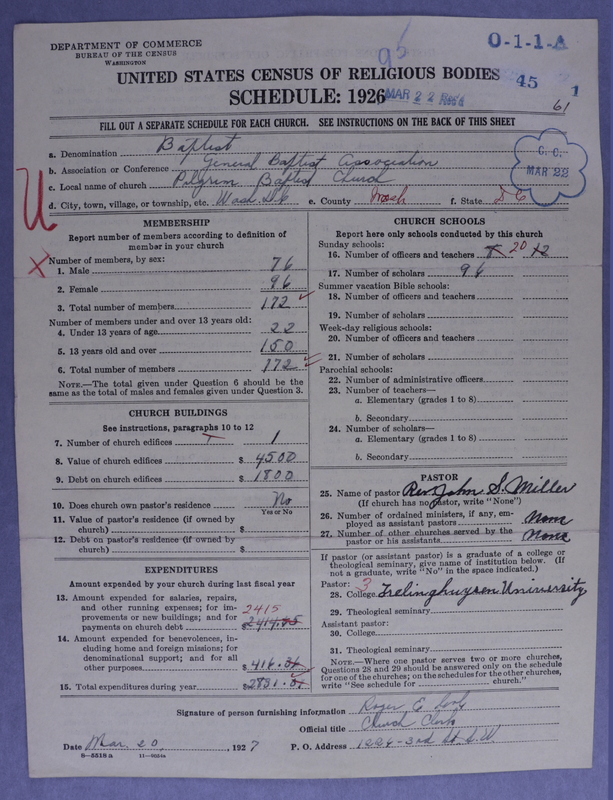 DEPARTMENT OF COMMERCE
BUREAU OF THE CENSUS
WASHINGTON
95
O-1-1-A
UNITED STATES CENSUS OF RELIGIOUS BODIES
45
1
SCHEDULE: 1926
MAR 22
61
FILL OUT A SEPARATE SCHEDULE FOR EACH CHURCH. SEE INSTRUCTIONS ON THE BACK OF THIS SHEET
a. Denomination Baptist
b. Association or Conference General Baptist Association
c. Local name of church Pilgrim Baptist Church
d. City, town, village, or township, etc. Wash. D.C. e. County Wash f. State D C
C. C.
MAR 22
U
MEMBERSHIP
Report number of members according to definition of
member in your church
X
Number of members, by sex:
1. Male 76
2. Female 96
3. Total number of members 172
Number of members under and over 13 years old:
4. Under 13 years of age 22
5. 13 years old and over 150
6. Total number of members 172
NOTE.—The total given under Question 6 should be
same as the total of males and females given under Question 3.
CHURCH BUILDINGS
See instructions, paragraphs 10 to 12
7. Number of church edifices 1
8. Value of church edifices $ 4500
9. Debt on church edifices $ 1800
10. Does church own pastor's residence No
Yes or No
11. Value of pastor's residence (if owned by
church) $
12. Debt on pastor's residence (if owned by
church) $
EXPENDITURES
Amount expended by your church during last fiscal year
13. Amount expended for salaries, repairs,
and other running expenses; for im-
provements or new buildings; and for
payments on church debt 2415
14. Amount expended for benevolences, in-
cluding home and foreign missions; for
denominational support; and for all
other purposes $ 416.
15. Total expenditures during year $ 2831.
CHURCH SCHOOLS
Report here only schools conducted by this church
Sunday schools:
16. Number of officers and teachers 20 12
17. Number of scholars 96
Summer vacation Bible schools:
18. Number of officers and teachers
19. Number of scholars
Week-day religious schools:
20. Number of officers and teachers
21. Number of scholars
Parochial schools:
22. Number of administrative officers
23. Number of teachers—
a. Elementary (grades 1 to 8)
b. Secondary
24. Number of scholars—
a. Elementary (grades 1 to 8)
b. Secondary
PASTOR
25. Name of pastor Rev. John S. Miller
(If church has no pastor, write "None")
26. Number of ordained ministers, if any, em-
ployed as assistant pastors None
27. Number of other churches served by the
pastor or his assistants None
If pastor (or assistant pastor) is a graduate of a college or
theological seminary, give name of institution below. (If
not a graduate, write "No" in the space indicated.)
Pastor: 3
28. College Frelinghuysen University
29. Theological seminary
Assistant pastor:
30. College
31. Theological seminary
NOTE.—Where one pastor serves two or more churches,
Questions 28 and 29 should be answered only on the schedule
for one of the churches; on the schedules for the other churches,
write "See schedule for church."
Signature of person furnishing information Roger E.
Official title Church Clerk
Date Mar. 20, 1927 P. O. Address 1224-3rd St. S.W.
8—5518 a